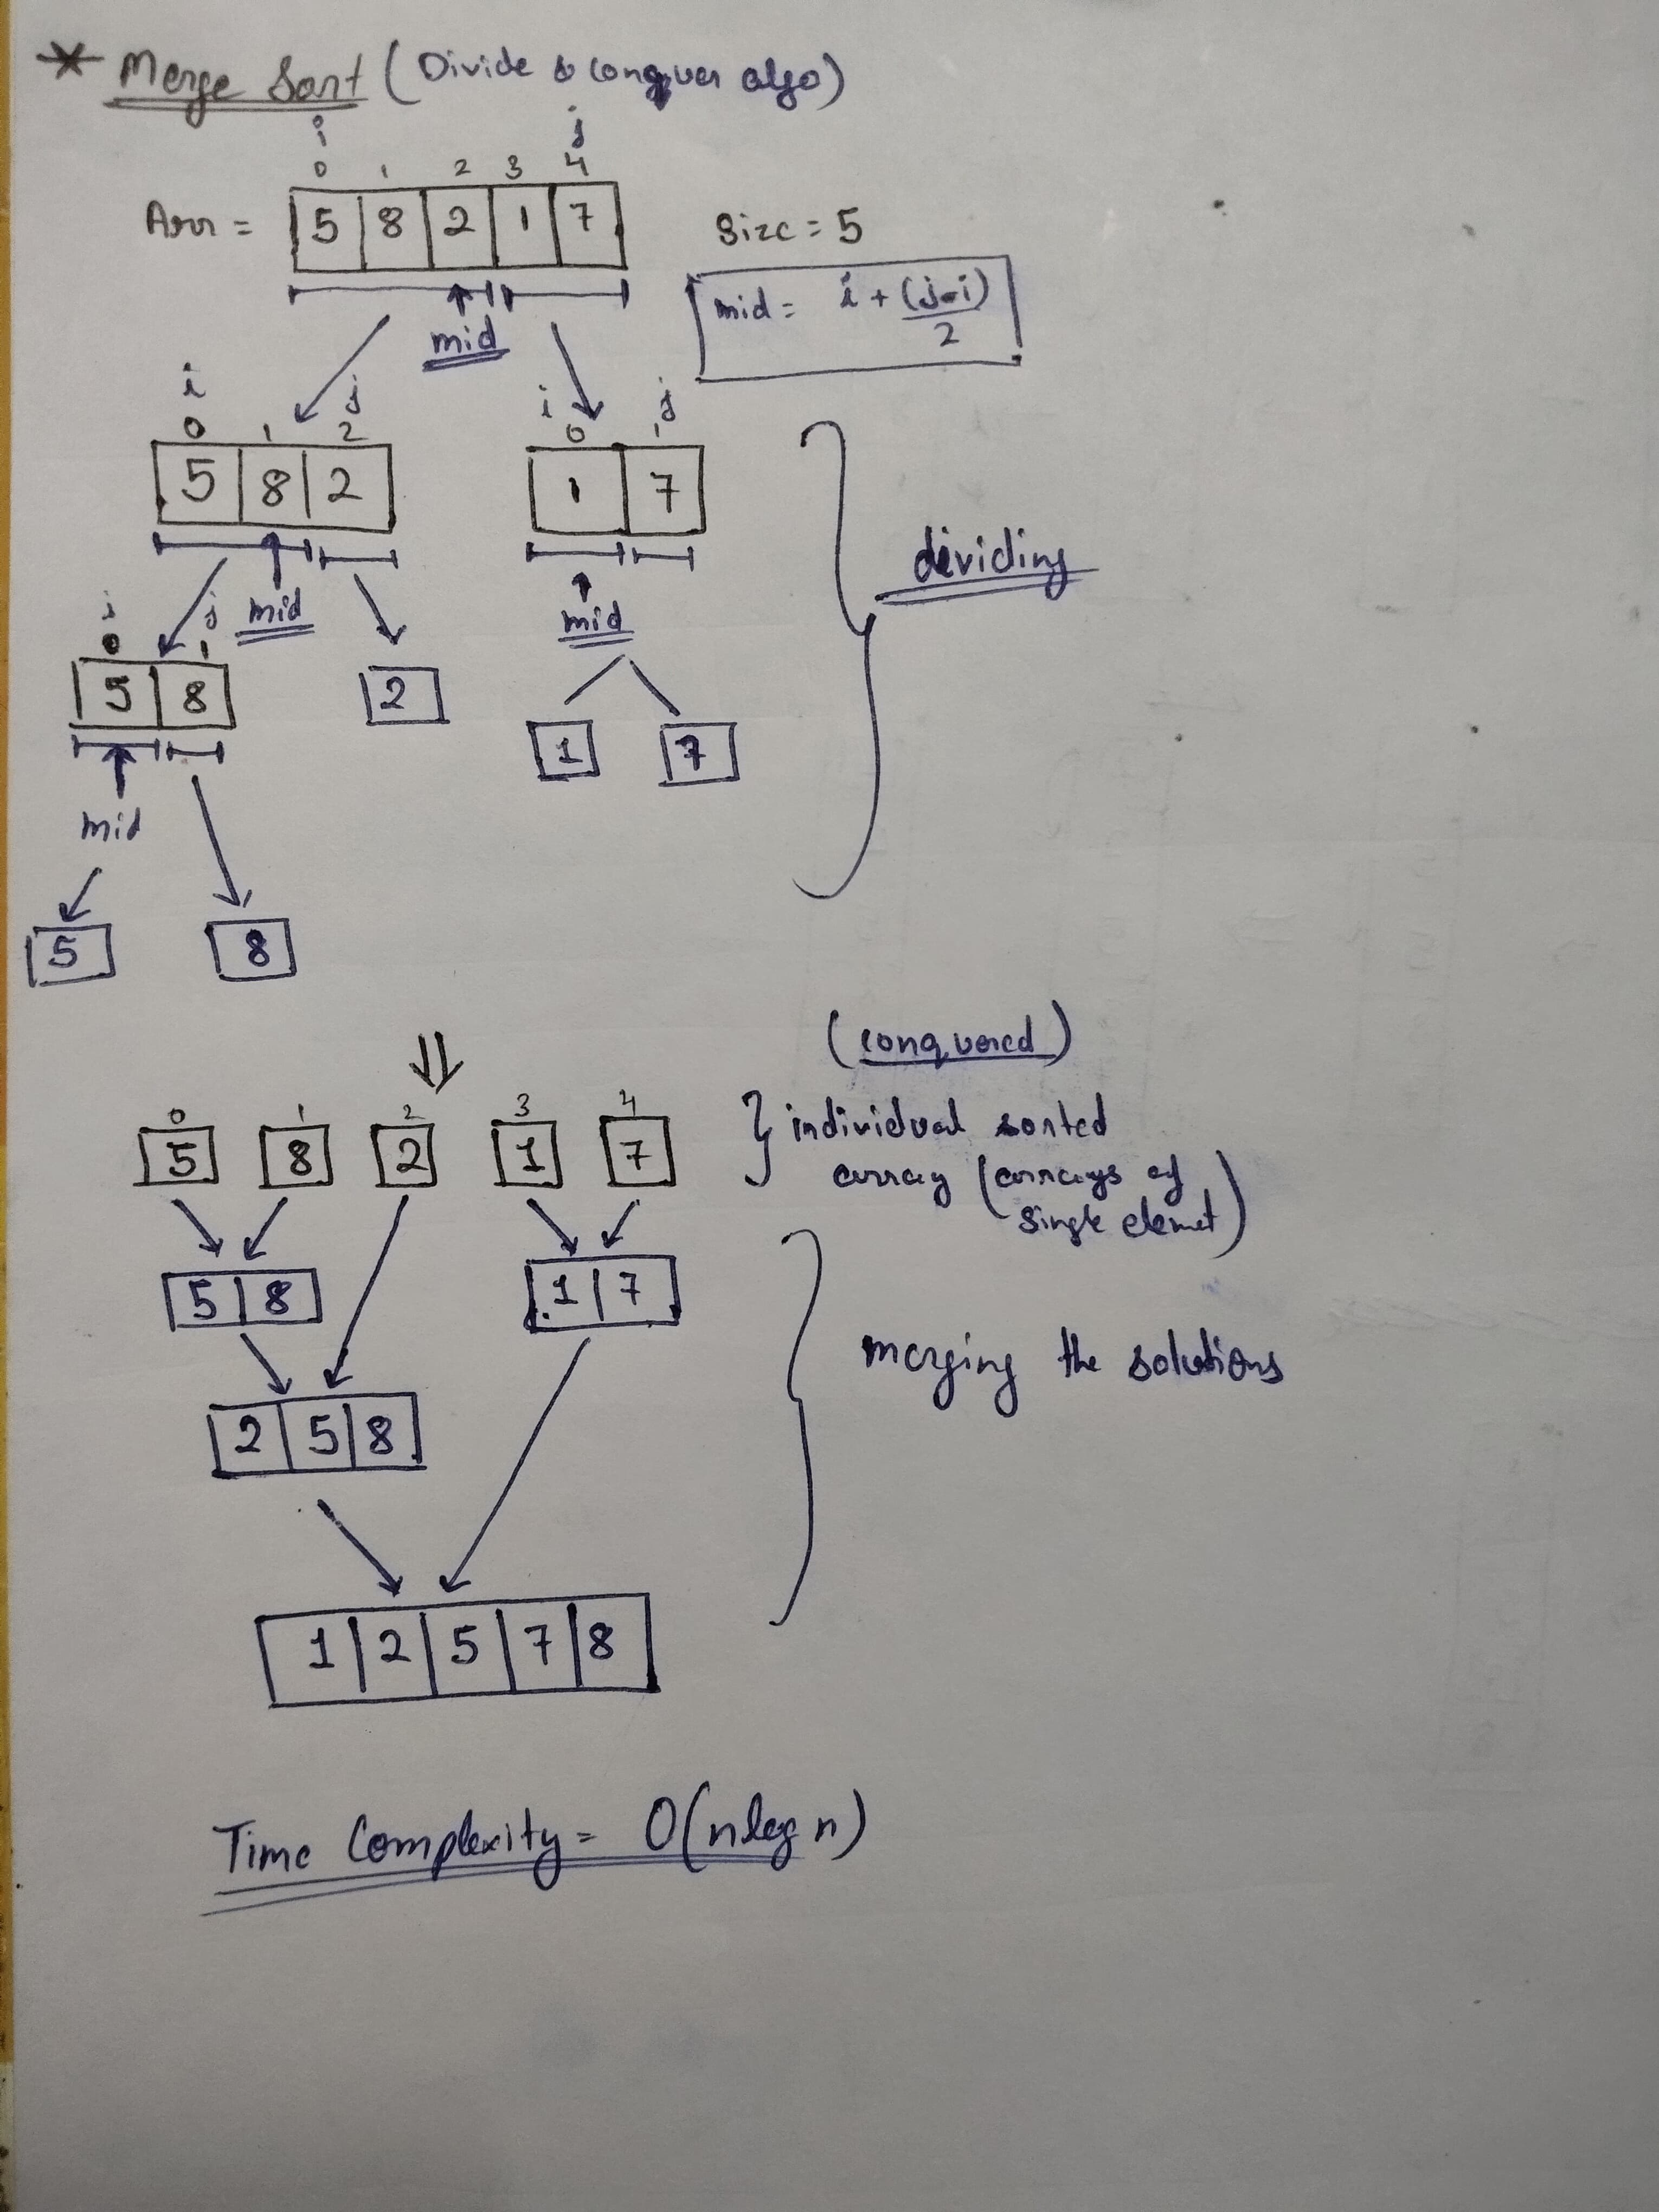 * Merge Sort (Divide & Conquer algo)
i j
0 1 2 3 4
Arr = 5 8 2 1 7 Size = 5
mid mid = i + (j-i)/2
i j i j
0 1 2 0 1
5 8 2 1 7
dividing
mid mid
i j
0 1
5 8 2
1 7
mid
5 8
⇓
(conquered)
0 1 2 3 4
5 8 2 1 7 } individual sorted
array (arrays of
single elemet)
5 8 1 7
merging the solutions
2 5 8
1 2 5 7 8
Time Complexity = O(nlog n)